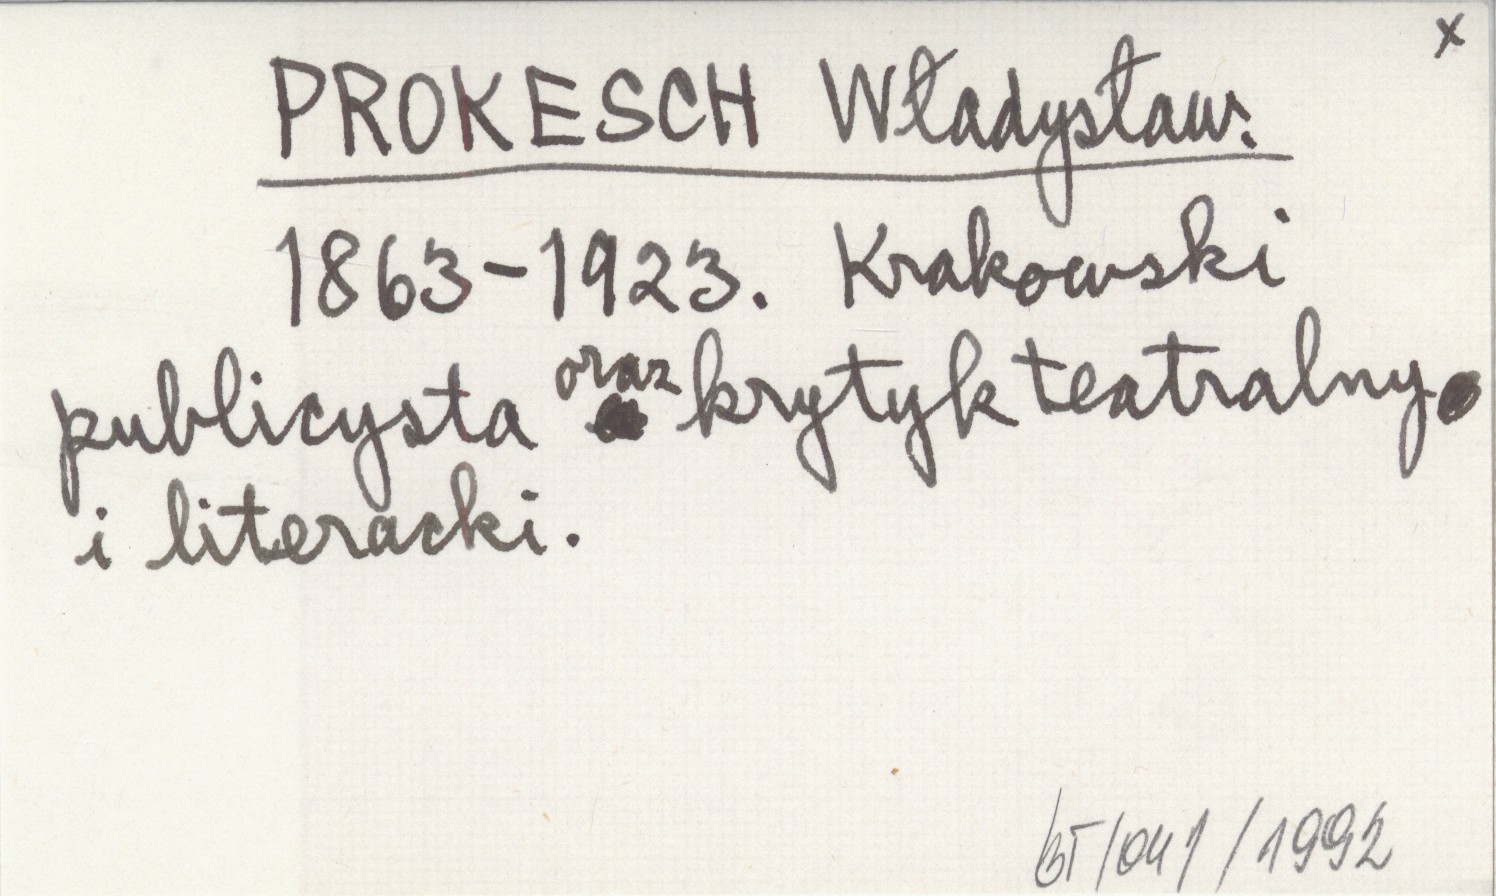 x
PROKESCH Władysław.
1863-1923. Krakowski
publicysta oraz krytyk teatralny
i literacki.
BT/041/1992